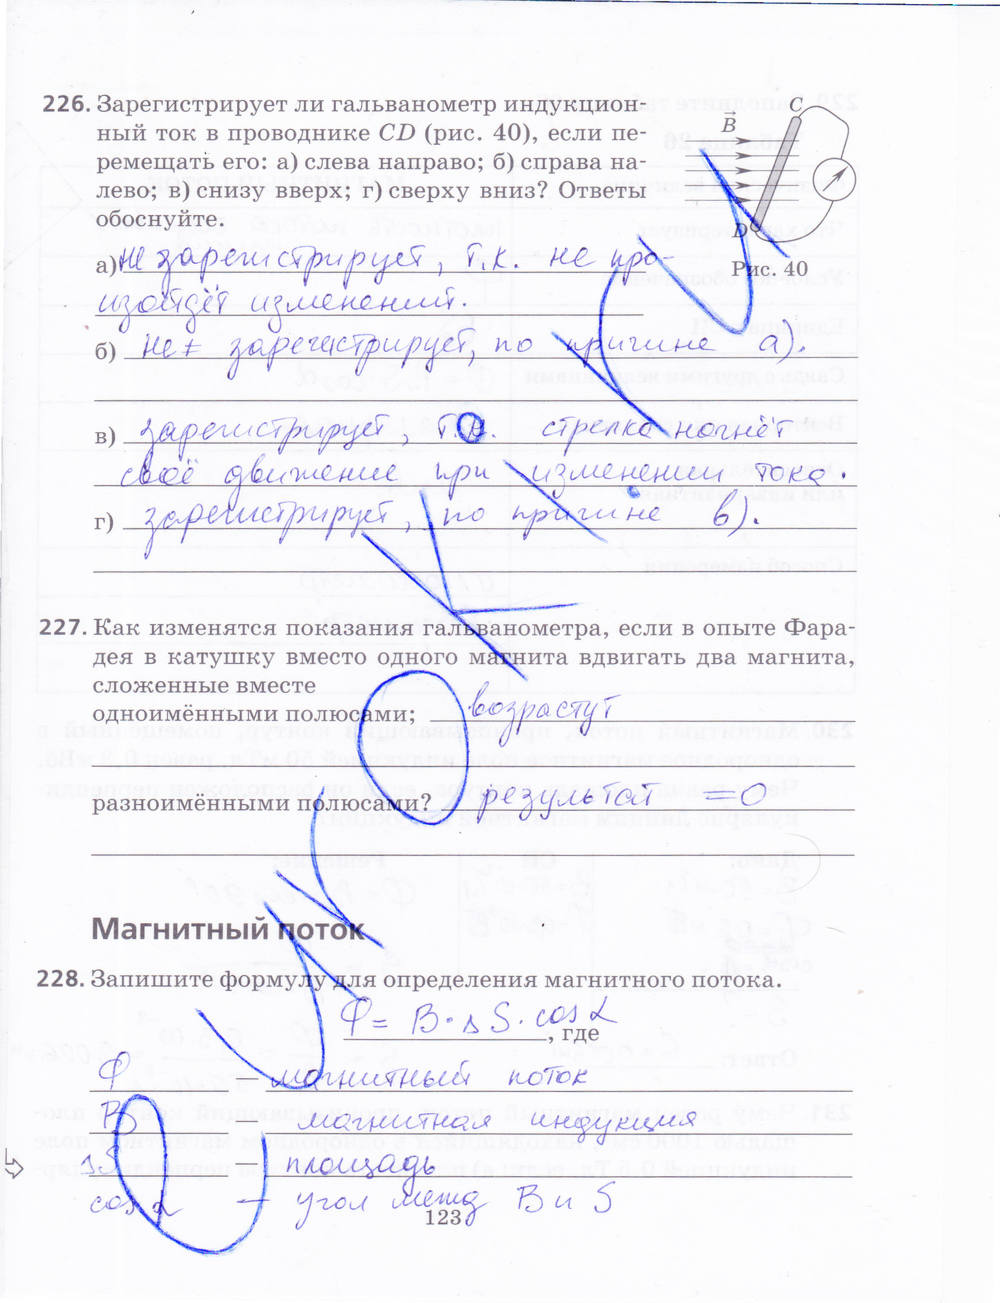 226. Зарегистрирует ли гальванометр индукцион-
ный ток в проводнике CD (рис. 40), если пе-
ремещать его: а) слева направо; б) справа на-
лево; в) снизу вверх; г) сверху вниз? Ответы
обоснуйте.
C
B
D
Рис. 40
а) не зарегистрирует, т.к. не про-
изойдёт изменений.
б) не зарегистрирует, по причине а).
в) зарегистрирует, т.к. стрелка начнёт
своё движение при изменении тока.
г) зарегистрирует, по причине в).
227. Как изменятся показания гальванометра, если в опыте Фара-
дея в катушку вместо одного магнита вдвигать два магнита,
сложенные вместе
одноимёнными полюсами; возрастут
разноимёнными полюсами? результат = 0
Магнитный поток
228. Запишите формулу для определения магнитного потока.
Ф = B · ΔS · cos α, где
Ф — магнитный поток
B — магнитная индукция
ΔS — площадь
cos α — угол между B и S
123